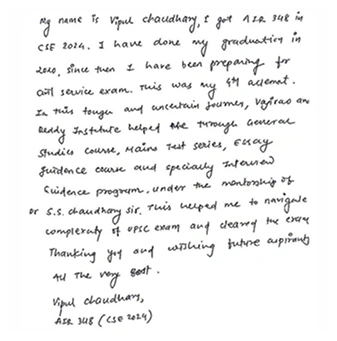 My name is Vipul chaudhary, I got AIR 348 in
CSE 2024. I have done my graduation in
2020, since then I have been preparing for
civil service exam. This was my 4th attempt.
In this tough and uncertain journey, Vajirao an
Reddy Institute helped me through General
Studies Course, Mains Test Series, Essay
Guidence course and specially Interview
Guidence program, under the mentorship of
Dr S.S. chaudhary sir. This helped me to navigate
complexity of UPSC exam and cleared the exam
Thanking you and wishing future aspirants
All The very Best.
Vipul chaudhary,
AIR 348 (CSE 2024)